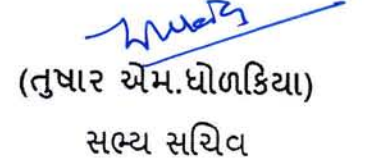 (તુષાર એમ.ધોળકિયા)
સભ્ય સચિવ